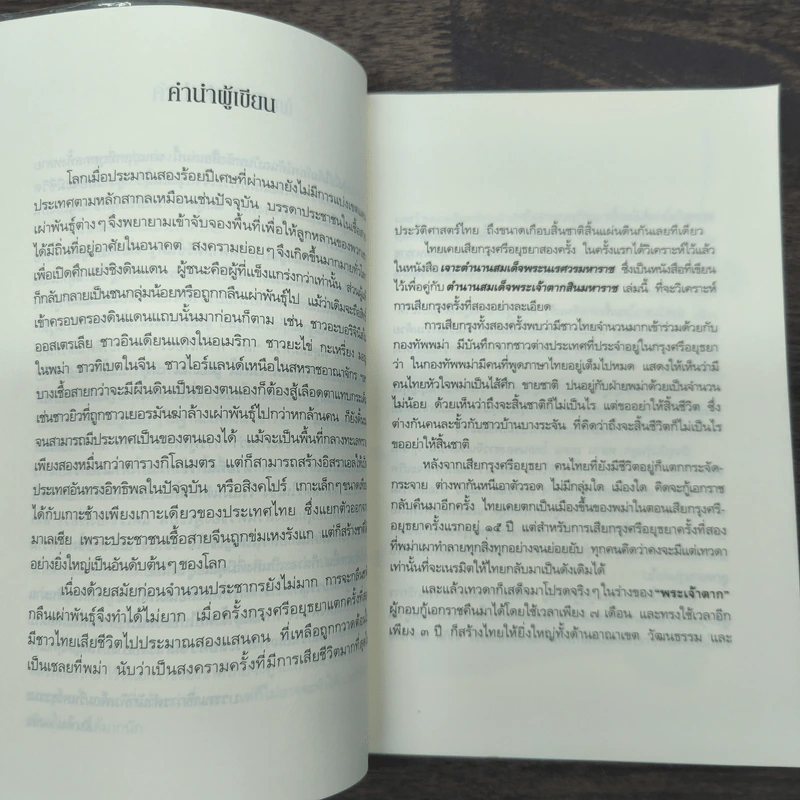 คำนำผู้เขียน
โลกเมื่อประมาณสองร้อยปีเศษที่ผ่านมายังไม่มีการแบ่งเขตแดน
ประเทศตามหลักสากลเหมือนเช่นปัจจุบัน บรรดาประชาชนในเชื้อสาย
เผ่าพันธุ์ต่างๆ จึงพยายามเข้าจับจองพื้นที่เพื่อให้ลูกหลานของพวก
ได้มีถิ่นที่อยู่อาศัยในอนาคต สงครามย่อยๆ จึงเกิดขึ้นมากมาย
เพื่อเปิดศึกแย่งชิงดินแดน ผู้ชนะคือผู้ที่แข็งแกร่งกว่าเท่านั้น ส่วน
ก็กลับกลายเป็นชนกลุ่มน้อยหรือถูกกลืนเผ่าพันธุ์ไป แม้ว่าเดิมจะ
เข้าครอบครองดินแดนแถบนั้นมาก่อนก็ตาม เช่น ชาวอะบอริจิน
ออสเตรเลีย ชาวอินเดียนแดงในอเมริกา ชาวยะไข่ กะเหรี่ยง มอญ
ในพม่า ชาวทิเบตในจีน ชาวไอร์แลนด์เหนือในสหราชอาณาจักร ฯลฯ
บางเชื้อสายกว่าจะมีผืนดินเป็นของตนเองก็ต้องสู้เลือดตาแทบกระเด็น
เช่นชาวยิวที่ถูกชาวเยอรมันฆ่าล้างเผ่าพันธุ์ไปกว่าหกล้านคน ก็ยัง
จนสามารถมีประเทศเป็นของตนเองได้ แม้จะเป็นพื้นที่กลางทะเลทราย
เพียงสองหมื่นกว่าตารางกิโลเมตร แต่ก็สามารถสร้างอิสราเอลให้เป็น
ประเทศอันทรงอิทธิพลในปัจจุบัน หรือสิงคโปร์ เกาะเล็กๆ ขนาด
ได้กับเกาะช้างเพียงเกาะเดียวของประเทศไทย ซึ่งแยกตัวออกจาก
มาเลเซีย เพราะประชาชนเชื้อสายจีนถูกข่มเหงรังแก แต่ก็สร้างชาติ
อย่างยิ่งใหญ่เป็นอันดับต้นๆ ของโลก
เนื่องด้วยสมัยก่อนจำนวนประชากรยังไม่มาก การจะกลืนชาติ
กลืนเผ่าพันธุ์จึงทำได้ไม่ยาก เมื่อครั้งกรุงศรีอยุธยาแตกครั้งที่สอง
มีชาวไทยเสียชีวิตไปประมาณสองแสนคน ที่เหลือถูกกวาดต้อน
เป็นเชลยที่พม่า นับว่าเป็นสงครามครั้งที่มีการเสียชีวิตมากที่สุด
ประวัติศาสตร์ไทย ถึงขนาดเกือบสิ้นชาติสิ้นแผ่นดินกันเลยทีเดียว
ไทยเคยเสียกรุงศรีอยุธยาสองครั้ง ในครั้งแรกได้วิเคราะห์ไว้แล้ว
ในหนังสือ เจาะตำนานสมเด็จพระนเรศวรมหาราช ซึ่งเป็นหนังสือที่เขียน
ไว้เพื่อคู่กับ ตำนานสมเด็จพระเจ้าตากสินมหาราช เล่มนี้ ที่จะวิเคราะห์
การเสียกรุงศรีอยุธยาครั้งที่สองอย่างละเอียด
การเสียกรุงทั้งสองครั้งพบว่ามีชาวไทยจำนวนมากเข้าร่วมด้วยกับ
กองทัพพม่า มีบันทึกจากชาวต่างประเทศที่ประจำอยู่ในกรุงศรีอยุธยา
ว่า ในกองทัพพม่ามีคนที่พูดภาษาไทยอยู่เต็มไปหมด แสดงให้เห็นว่ามี
คนไทยหัวใจพม่าเป็นไส้ศึก ขายชาติ ปนอยู่กับฝ่ายพม่าด้วยเป็นจำนวน
ไม่น้อย ด้วยเห็นว่าถึงจะสิ้นชาติก็ไม่เป็นไร แต่ขออย่าให้สิ้นชีวิต ซึ่ง
ต่างกันคนละขั้วกับชาวบ้านบางระจัน ที่คิดว่าถึงจะสิ้นชีวิตก็ไม่เป็นไร
ขออย่าให้สิ้นชาติ
หลังจากเสียกรุงศรีอยุธยา คนไทยที่ยังมีชีวิตอยู่ก็แตกกระจัด-
กระจาย ต่างพากันหนีเอาตัวรอด ไม่มีลุ่มใด เมืองใด คิดจะกู้เอกราช
กลับคืนมาอีกครั้ง ไทยเคยตกเป็นเมืองขึ้นของพม่าในตอนเสียกรุงศรี-
อยุธยาครั้งแรกอยู่ ๑๕ ปี แต่สำหรับการเสียกรุงศรีอยุธยาครั้งที่สอง
ที่พม่าเผาทำลายทุกสิ่งทุกอย่างจนย่อยยับ ทุกคนคิดว่าคงจะมีแต่เทวดา
เท่านั้นที่จะเนรมิตให้ไทยกลับมาเป็นดังเดิมได้
และแล้วเทวดาก็เสด็จมาโปรดจริงๆ ในร่างของ "พระเจ้าตาก"
ผู้กอบกู้เอกราชคืนมาได้โดยใช้เวลาเพียง ๗ เดือน และทรงใช้เวลาอีก
เพียง ๓ ปี ก็สร้างไทยให้ยิ่งใหญ่ทั้งด้านอาณาเขต วัฒนธรรม และ